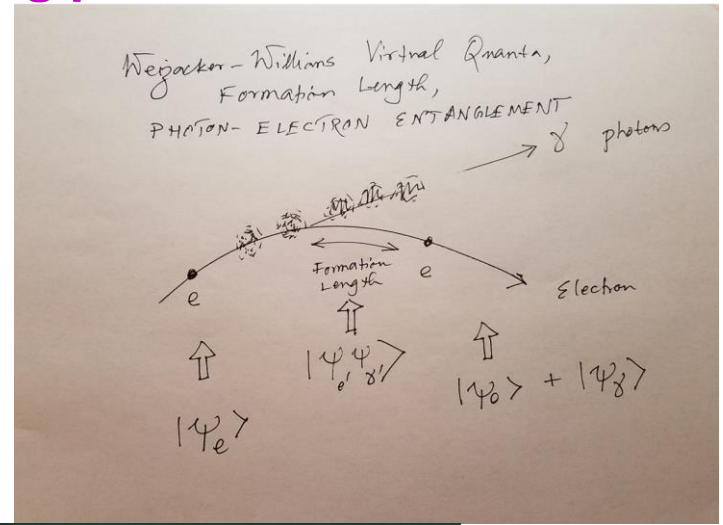 Weijacker-Willians Virtual Quanta,
Formation Length,
PHOTON-ELECTRON ENTANGLEMENT
γ photons
e
Formation
Length
e
Electron
|Ψe>
|Ψe' Ψγ'>
|Ψ0> + |Ψγ>